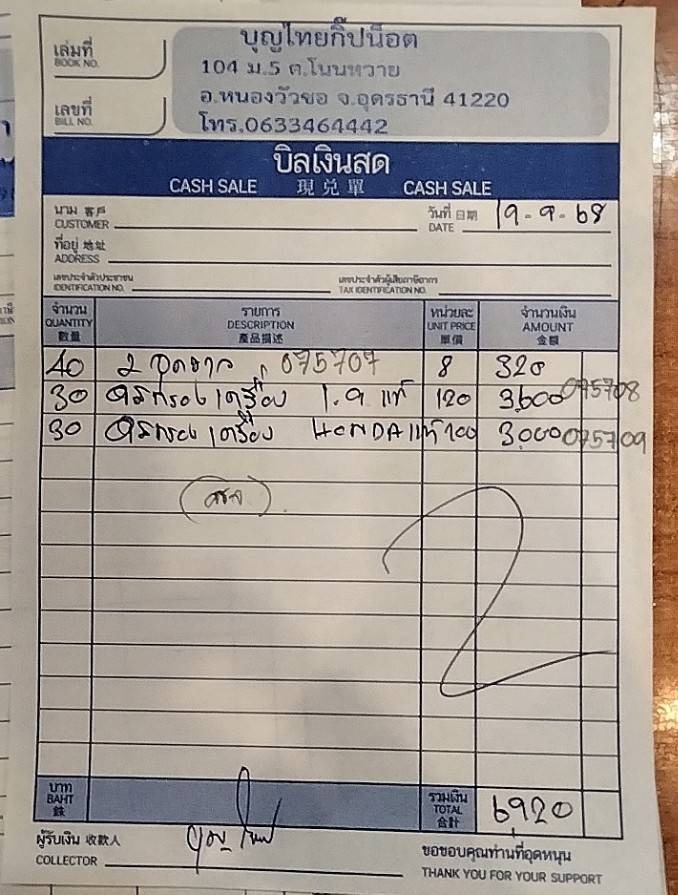 บุญไทยกิ๊ปน็อต
เล่มที่
BOOK NO.
104 ม.5 ต.โนนหวาย
อ.หนองวัวซอ จ.อุดรธานี 41220
เลขที่
BILL NO.
โทร.0633464442
บิลเงินสด
CASH SALE 現兌單 CASH SALE
นาม 客戶
CUSTOMER
วันที่ 日期
DATE 19-9-68
ที่อยู่ 地址
ADDRESS
เลขประจำตัวประชาชน
IDENTIFICATION NO.
เลขประจำตัวผู้เสียภาษีอากร
TAX IDENTIFICATION NO.
จำนวน รายการ หน่วยละ จำนวนเงิน
QUANTITY DESCRIPTION UNIT PRICE AMOUNT
數量 產品描述 單價 金額
40 075707 8 320
30 เครื่อง 1.9 แท้ 120 3,600 075708
30 เครื่อง HONDA แท้ 100 3,000 075709
2
บาท
BAHT
銖
รวมเงิน
TOTAL 6,920
合計
ผู้รับเงิน 收款人
COLLECTOR
ขอขอบคุณท่านที่อุดหนุน
THANK YOU FOR YOUR SUPPORT